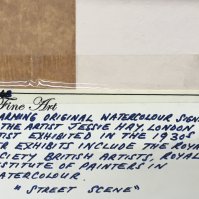 Fine Art
ARMING ORIGINAL WATERCOLOUR SIGNE
THE ARTIST JESSIE HAY, LONDON
TIST EXHIBITED IN THE 1930s
ER EXHIBITS INCLUDE THE ROYA
CIETY BRITISH ARTISTS, ROYAL
STITUTE OF PAINTERS IN
ATERCOLOUR.
"STREET SCENE"